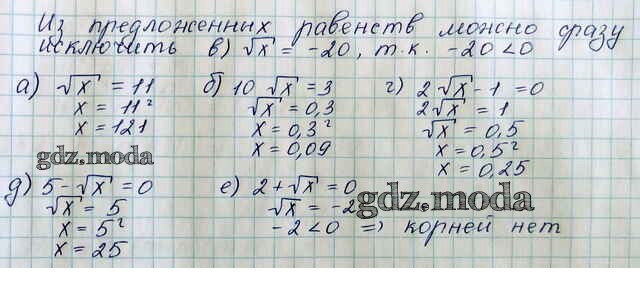 Из предложенных равенств можно сразу
исключить в) √x = -20, т.к. -20<0
а) √x = 11
x = 11²
x = 121
б) 10√x = 3
√x = 0,3
x = 0,3²
x = 0,09
г) 2√x - 1 = 0
2√x = 1
√x = 0,5
x = 0,5²
x = 0,25
gdz.moda
д) 5-√x = 0
√x = 5
x = 5²
x = 25
е) 2+√x = 0
√x = -2
-2<0 => корней нет
gdz.moda